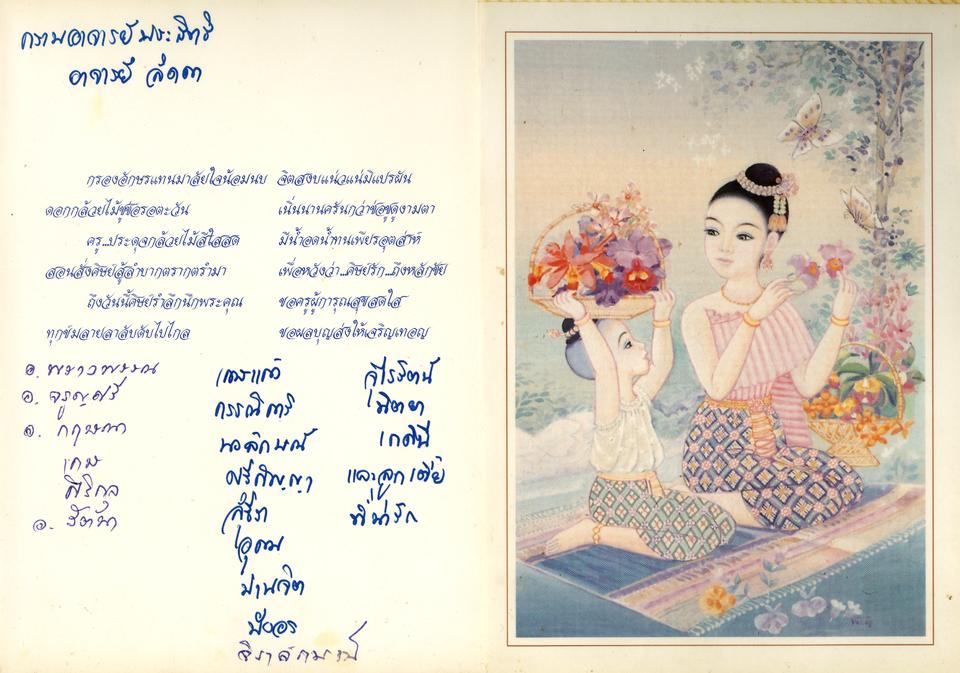 กราบอาจารย์
อาจารย์ ลัดดา
กรองอักษรแทนมาลัยใจน้อมนบ จิตสงบแน่วแน่มิแปรผัน
ดอกกล้วยไม้ชูช่อรอตะวัน เนิ่นนานครันกว่าช่อชูดูงามตา
ครู...ประดุจกล้วยไม้สีใสสด มีน้ำอดน้ำทนเพียรอุตส่าห์
สอนสั่งศิษย์สู้ลำบากตรากตรำมา เพื่อหวังว่า...ศิษย์รัก...ถึงหลักชัย
ถึงวันนี้ศิษย์รำลึกนึกพระคุณ ขอครูผู้การุณสุขสดใส
ทุกข์มลายลาลับดับไปไกล ขอผลบุญส่งให้เจริญเทอญ
อ. พราวพรรณ
อ. จรูญศรี
อ. กฤษณา
เกม
ศิริกุล
อ. รัตนา
แพรแก้ว
กรรณิการ์
นวลักษณ์
ศรีสัญญา
สุธีรา
อุดม
ปานจิต
บังอร
จิราลักษณ์
จุไรรัตน์
นิตยา
เกศินี
และลูกเตี้ย
ที่น่ารัก